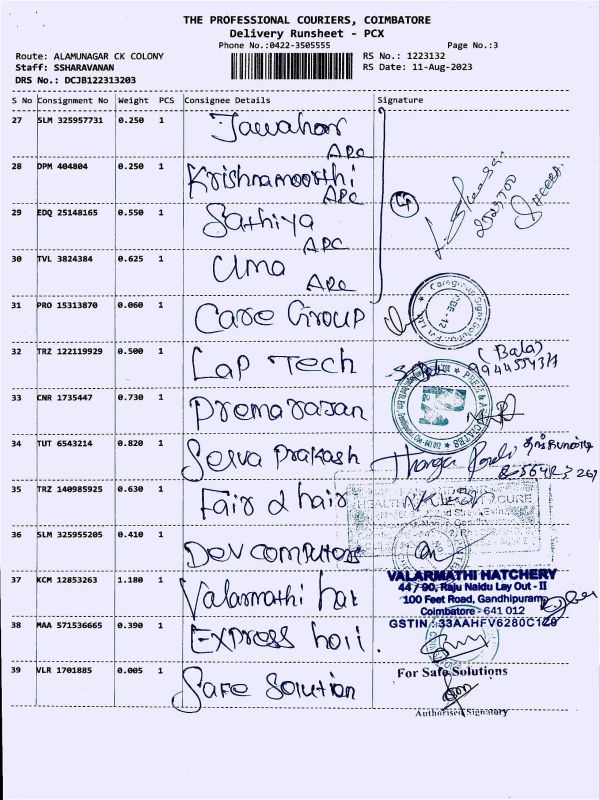 THE PROFESSIONAL COURIERS, COIMBATORE
Delivery Runsheet - PCX
Phone No.:0422-3505555
Page No.:3
Route: ALAMUNAGAR CK COLONY
RS No.: 1223132
Staff: SSHARAVANAN
RS Date: 11-Aug-2023
DRS No.: DCJB122313203
S No Consignment No Weight PCS Consignee Details Signature
27 SLM 325957731 0.250 1 Jawahar
APC
28 DPM 404804 0.250 1 Krishnamoorthi
APC
29 EDQ 25148165 0.550 1 Sathiya
APC
30 TVL 3824384 0.625 1 Uma APC
31 PRO 15313870 0.060 1 Care Group
32 TRZ 122119929 0.500 1 Lap Tech
(Bala)
33 CNR 1735447 0.730 1 Premarajan
34 TUT 6543214 0.820 1 Selva Prakash
35 TRZ 140985925 0.630 1 Fair & hair
36 SLM 325955205 0.410 1 Dev computors
37 KCM 12853263 1.180 1 Valarmathi hat
VALARMATHI HATCHERY
44 / 90, Raju Naidu Lay Out - II
100 Feet Road, Gandhipuram,
Coimbatore - 641 012
GSTIN : 33AAHFV6280C1Z6
38 MAA 571536665 0.390 1 Express holi
39 VLR 1701885 0.005 1 Safe Solution
For Safe Solutions
Authorised Signatory